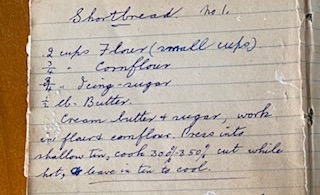 Shortbread. No 1.
2 cups Flour (small cups)
3/4 " Cornflour
3/4 " Icing-sugar
1/2 lb. Butter.
Cream butter & sugar, work
in flour & cornflour. Press into
shallow tin, cook 300/-350/ cut while
hot, & leave in tin to cool.